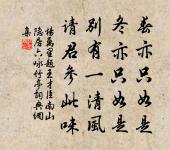 春亦只如是
冬亦只如是
别有一清風
请君参此味
楊萬里題王才臣南山
隐居六咏竹亭詞典網
集